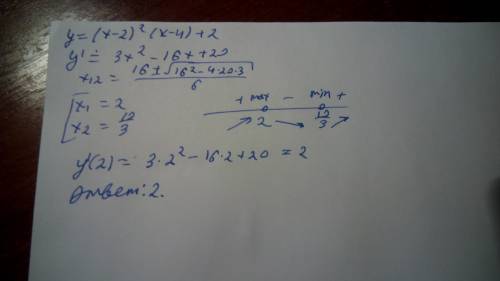 y=(x-2)²(x-4)+2
y' = 3x²-16x+20
x₁₂ = 16±√16²-4·20·3 / 6
x₁ = 2
x₂ = 10/3
+ max - min +
2 10/3
y'(2) = 3·2²-16·2+20 = 2
Ответ: 2.